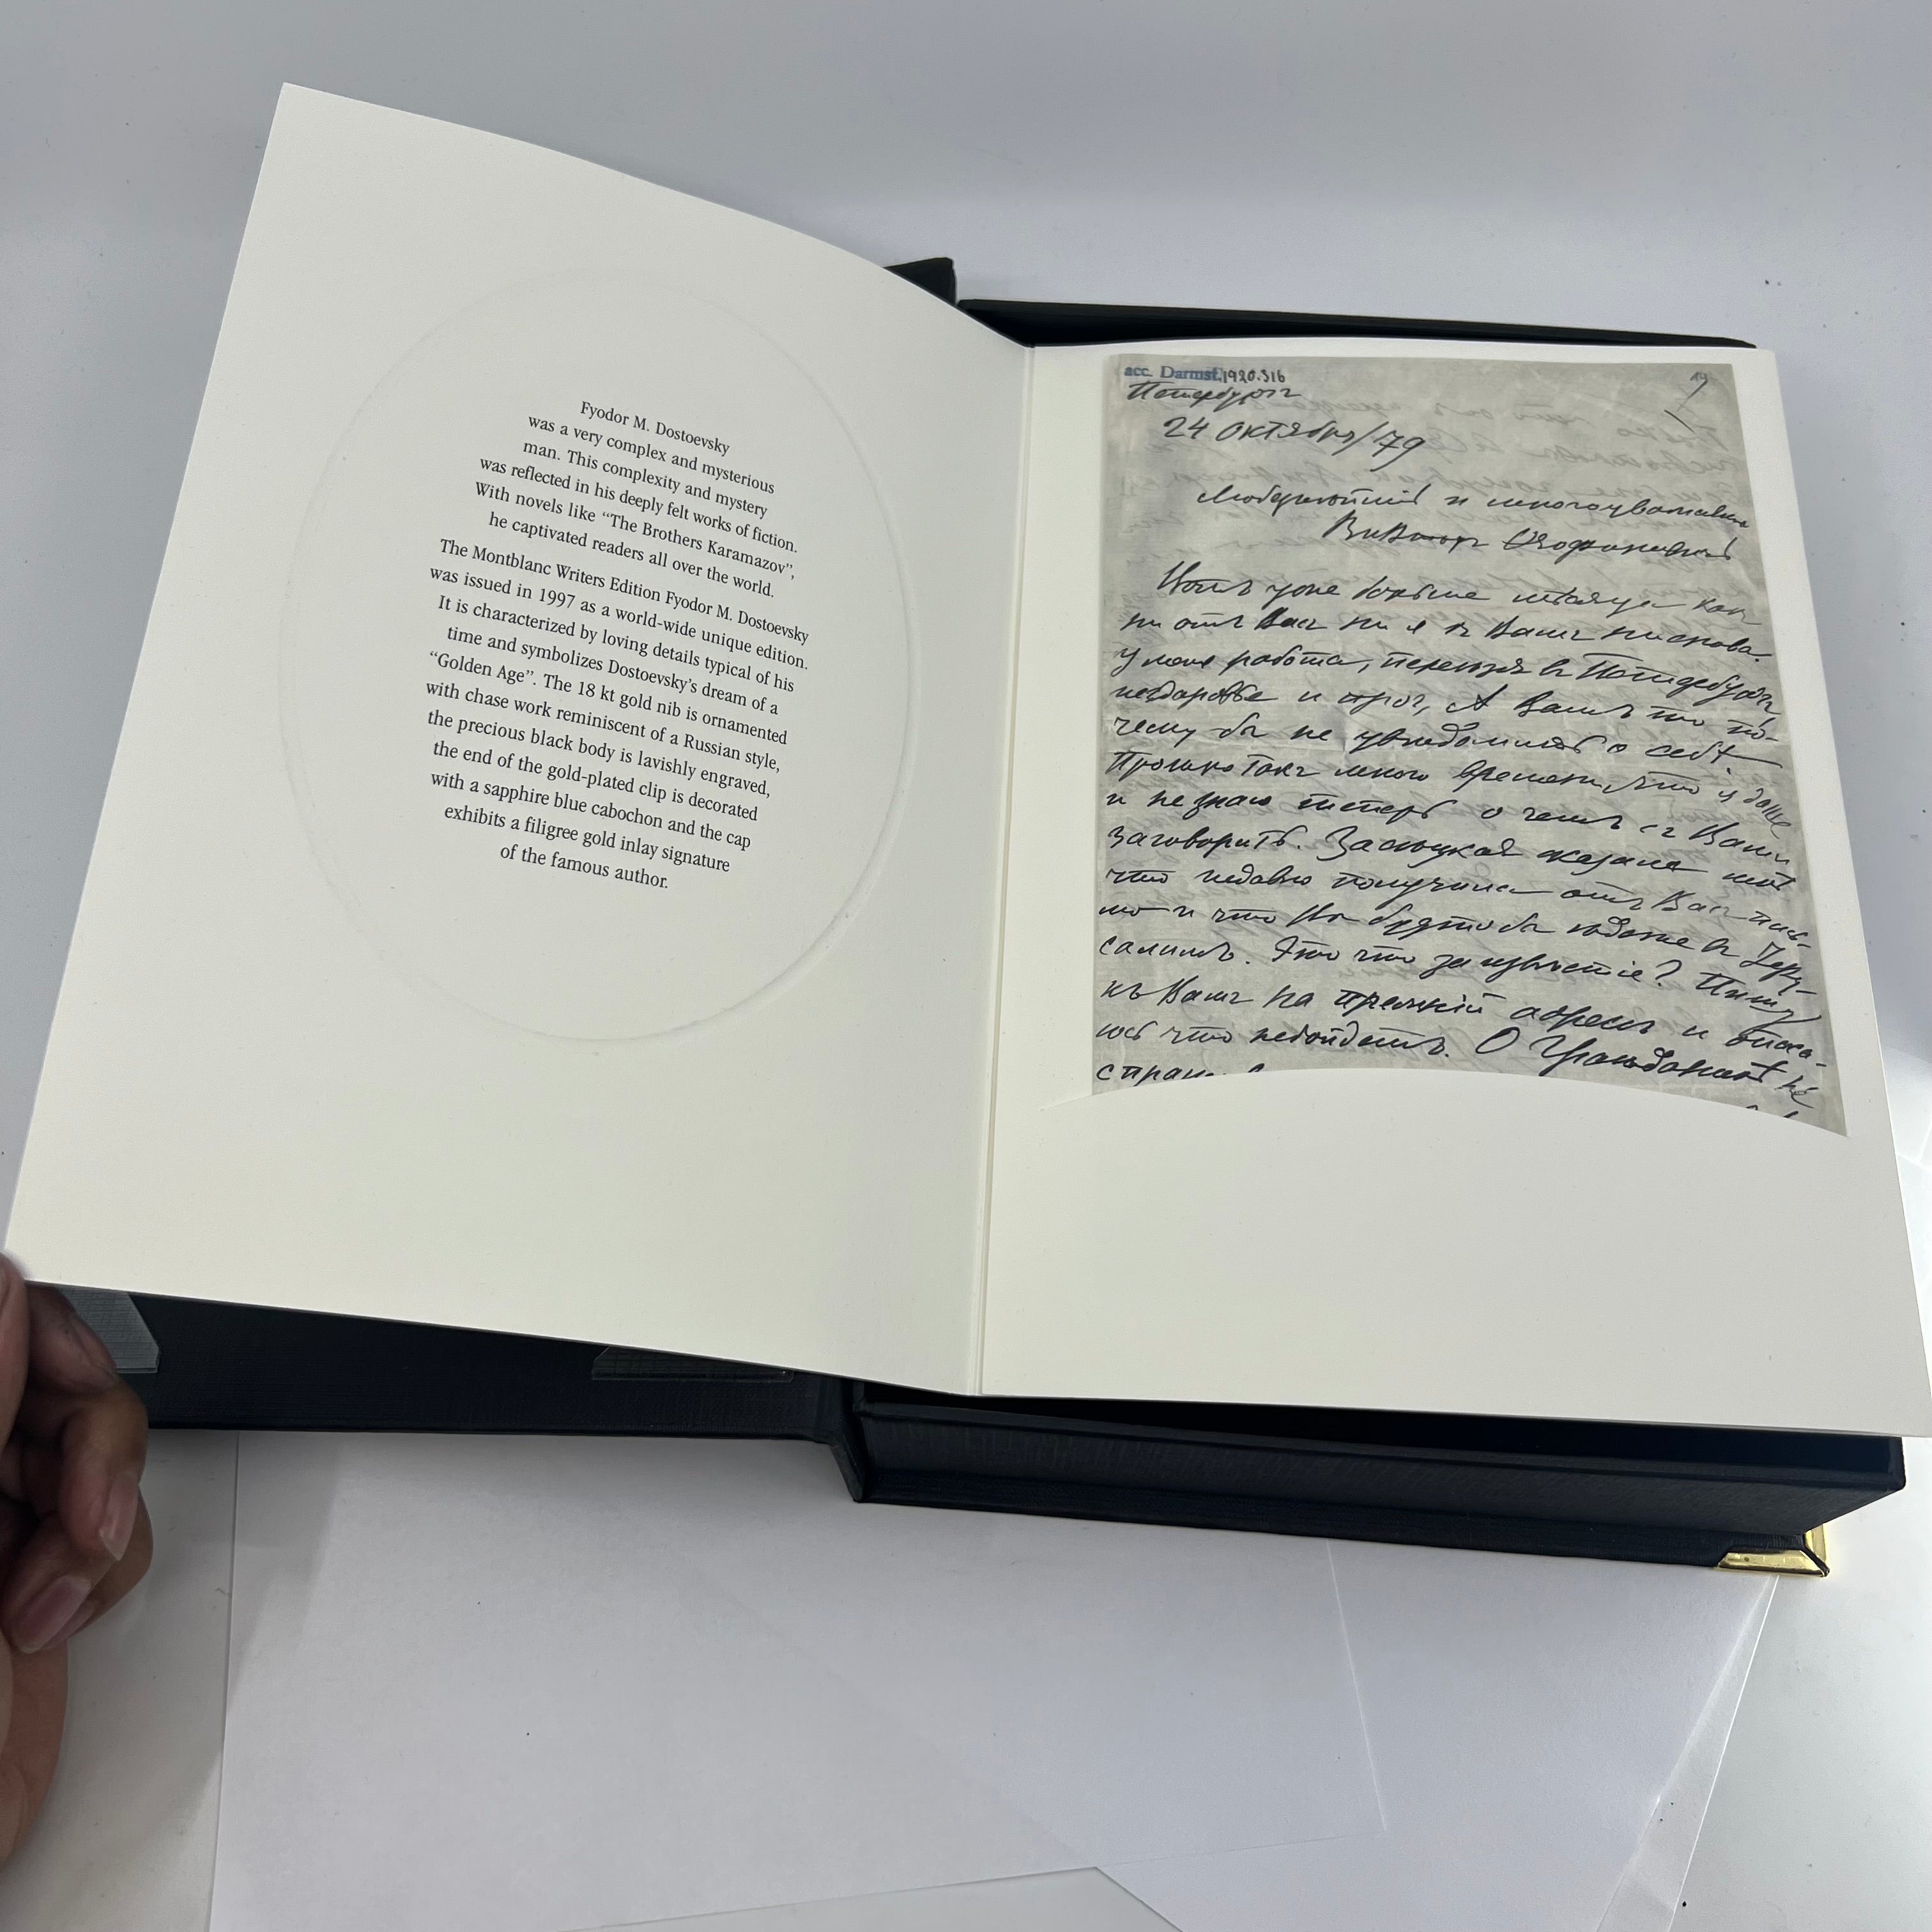 Fyodor M. Dostoevsky
was a very complex and mysterious
man. This complexity and mystery
was reflected in his deeply felt works of fiction.
With novels like “The Brothers Karamazov”,
he captivated readers all over the world.
The Montblanc Writers Edition Fyodor M. Dostoevsky
was issued in 1997 as a world-wide unique edition.
It is characterized by loving details typical of his
time and symbolizes Dostoevsky’s dream of a
“Golden Age”. The 18 kt gold nib is ornamented
with chase work reminiscent of a Russian style,
the precious black body is lavishly engraved,
the end of the gold-plated clip is decorated
with a sapphire blue cabochon and the cap
exhibits a filigree gold inlay signature
of the famous author.
acc. Darmst. 1920.316
Петербургъ
24 октября/79
Любезнѣйшій и многоуважаемый
Викторъ Ѳеофиловичь
уже больше мѣсяца какъ
ни отъ Васъ ни я къ Вамъ ни слова.
У меня работа, переѣздъ въ Петербургъ
нездоровье и проч, А Вамъ-то по-
чему бы не увѣдомить о себѣ.
Прошло такъ много времени, что я даже
и не знаю теперь о чемъ съ Вами
заговорить. Засѣцкая сказала мнѣ
что недавно получила отъ Васъ пись-
мо и что Вы будто бы ѣдете въ Іеру-
салимъ. Это что за извѣстіе? Пишу
къ Вамъ на прежній адресъ и опаса-
юсь что не дойдетъ. О Гражданинѣ не